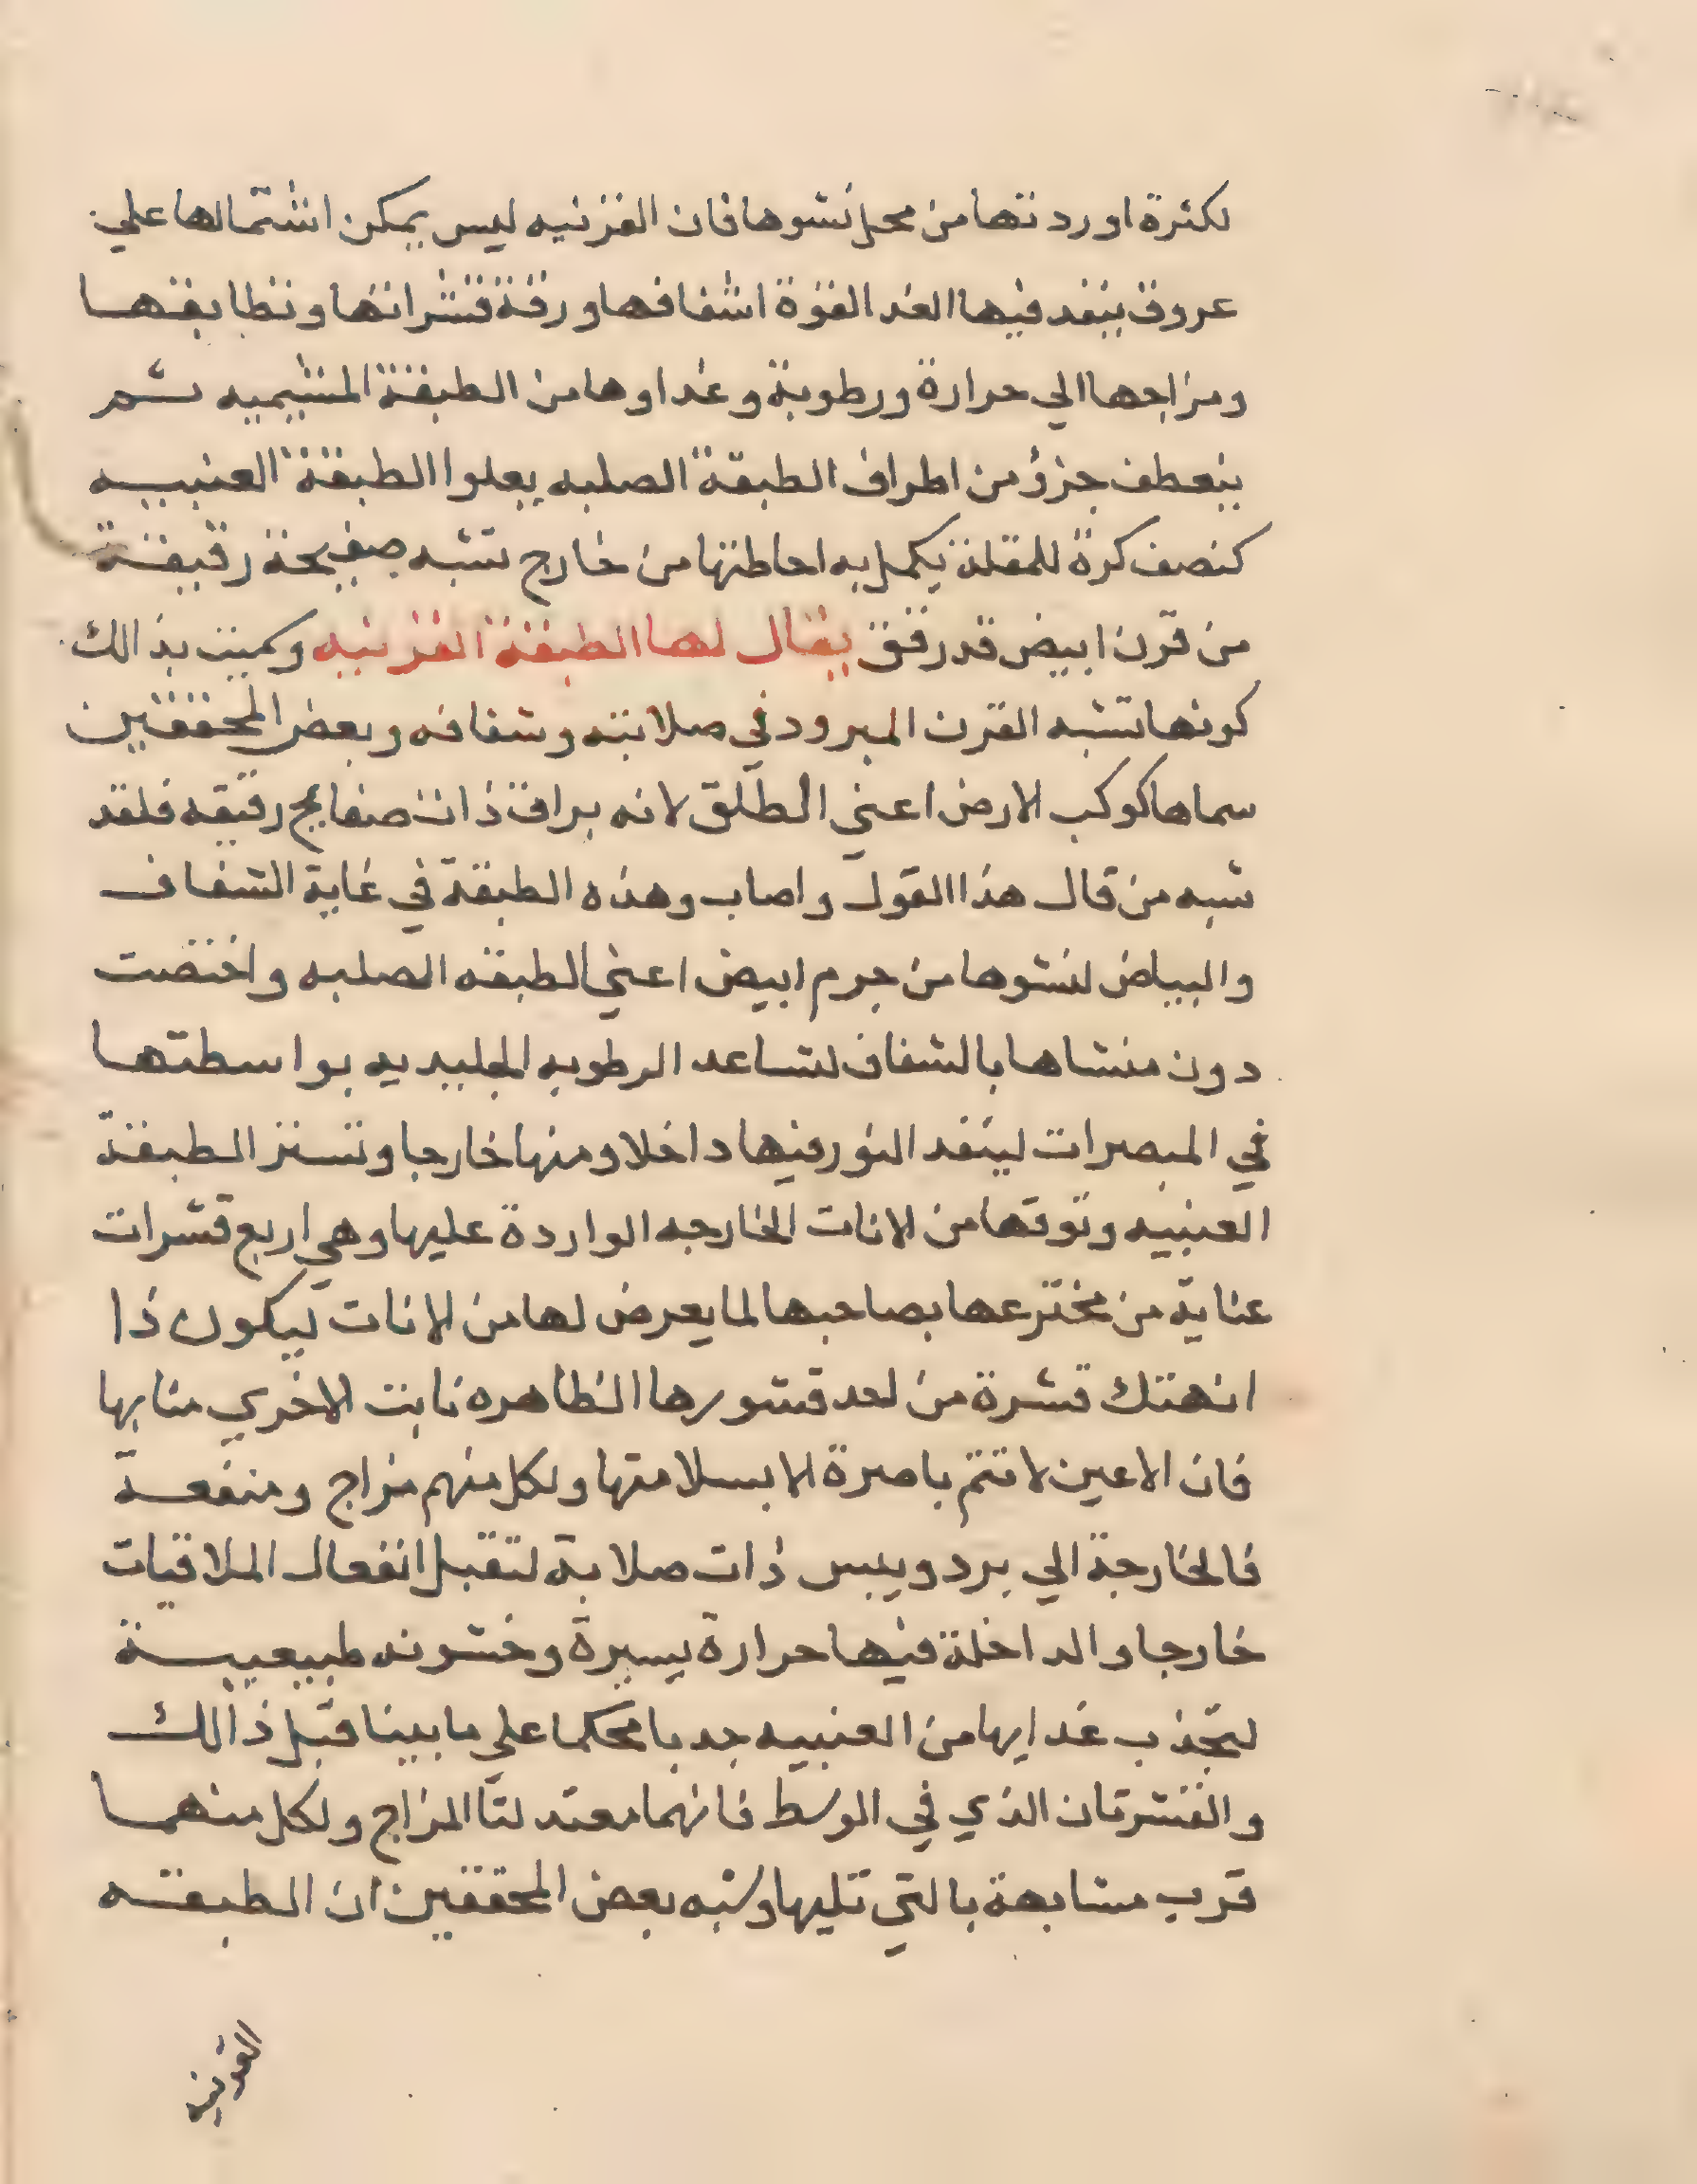 لكثرة اوردتها من محل نشوها فان القرنيه ليس يمكن اشتمالها علي
عروق ينفد فيها الغدا لقوة اشفافها ورقة قشراتها وتطابقها
ومزاجها الي حرارة ورطوبة وغداوها من الطبقة المشيميه ثم
ينعطف جزؤ من اطراف الطبقة الصلبه يعلوا الطبقة العنبيه
كنصف كرة للمقلة يكمل به احاطتها من خارج تشبه صفيحة رقيقة
من قرن ابيض قد رقق يقال لها الطبقة القرنيه وكميت بذالك
كونها تشبه القرن المبرود في صلابته وشفافه وبعض المحققين
سماها كوكب الارض اعني الطلق لانه براق ذات صفايح رقيقه فلقد
شبه من قال هذا القول واصاب وهذه الطبقة في غاية الشفاف
والبياض لنشوها من جرم ابيض اعني الطبقه الصلبه واختصت
دون منشاها بالشفاف لتساعد الرطوبه الجليديه بواسطتها
في المبصرات لينفد النور فيها داخلا ومنها خارجا وتستر الطبقة
العنبيه وتوقها من الافات الخارجه الواردة عليها وهي اربع قشرات
عناية من مخترعها بصاحبها لما يعرض لها من الافات ليكون ذا
انهتك قشرة من احد قشورها الظاهره نابت الاخري منابها
فان الاعين لا تتم باصرة الا بسلامتها ولكل منهم مزاج ومنفعة
فالخارجة الي برد ويبس ذات صلابة لتقبل انفعال الملاقيات
خارجا والداخلة فيها حرارة يسيرة وخشونه طبيعية
لتجذب غدايها من العنبيه جدبا محكما علي ما بينا قبل ذالك
والقشرتان الذي في الوسط فانهما معتدلتا المزاج ولكل منهما
قرب مشابهة بالتي تليها وشبه بعض المحققين ان الطبقه
القرنيه